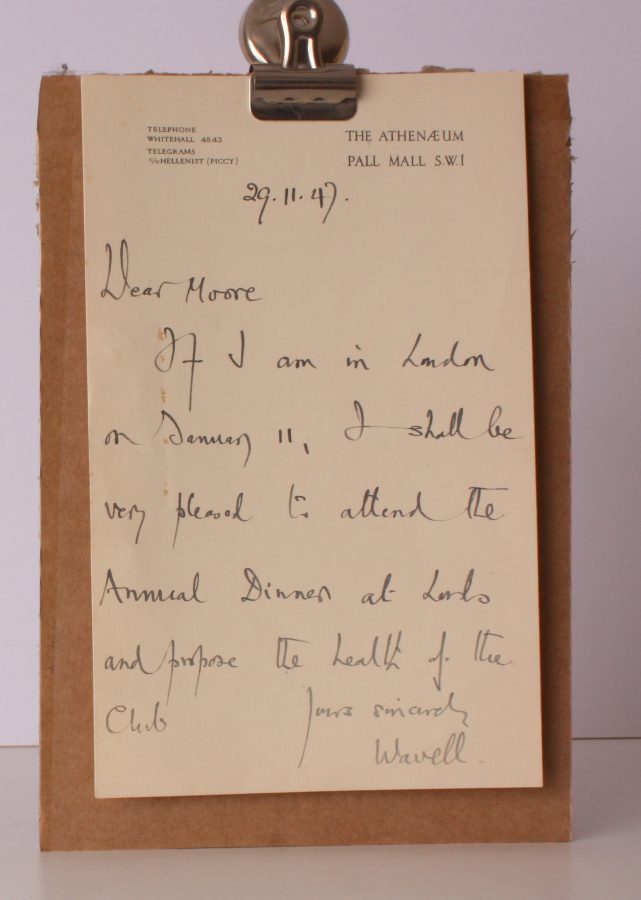 TELEPHONE
WHITEHALL 4843
TELEGRAMS
c/o HELLENIST (PICCY)
THE ATHENÆUM
PALL MALL S.W.1
29.11.47.
Dear Moore
If I am in London
on January 11, I shall be
very pleased to attend the
Annual Dinner at Lords
and propose the health of the
Club
Yours sincerely
Wavell.